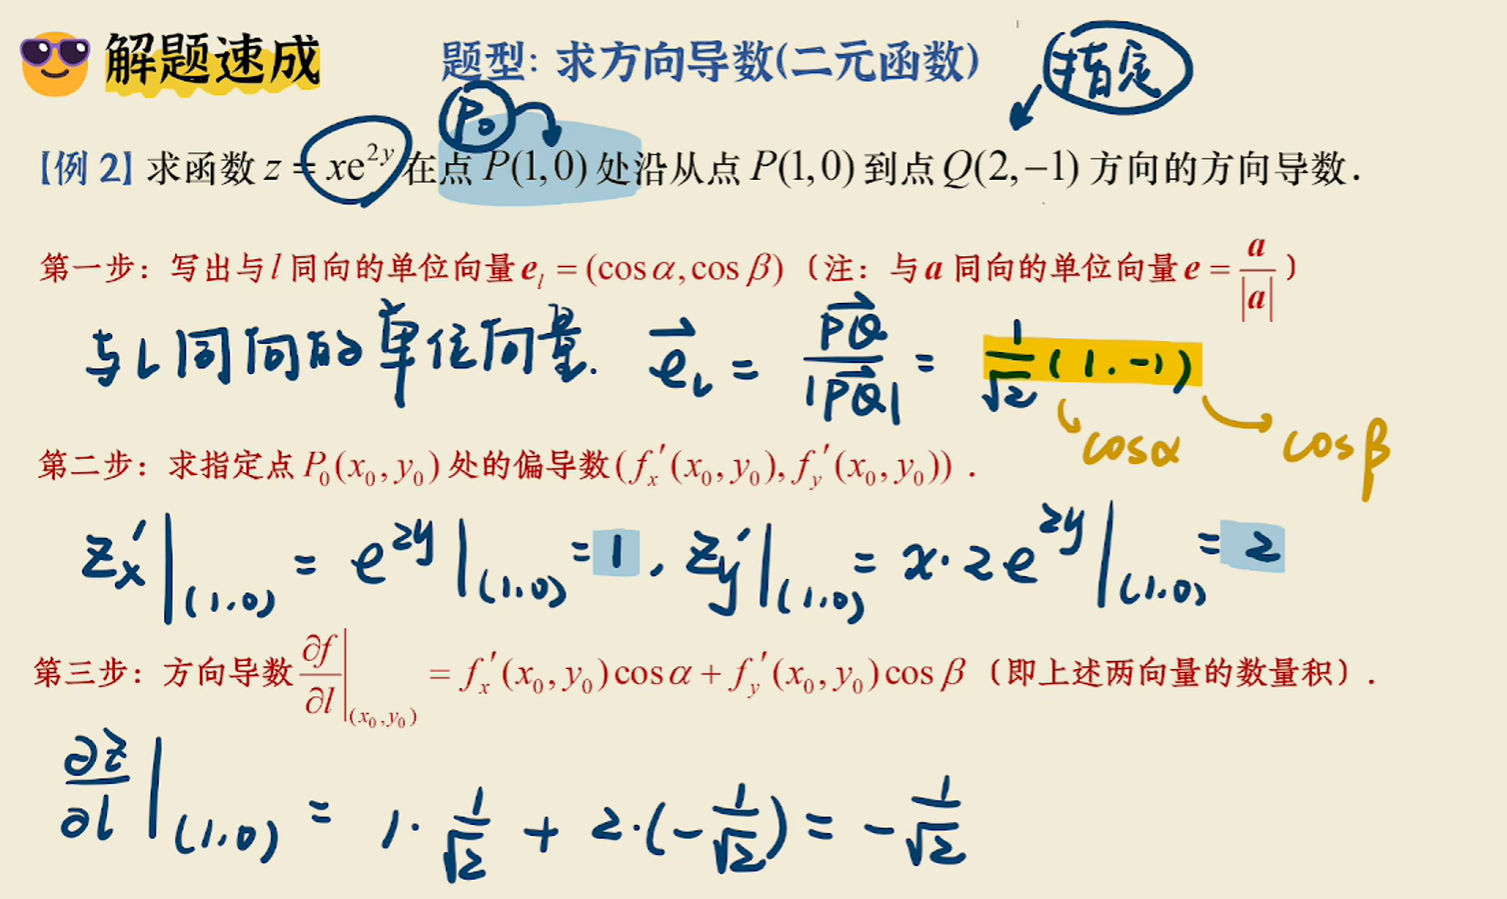 解题速成 题型：求方向导数(二元函数) 指定
P₀
【例2】求函数 z = xe^{2y} 在点 P(1,0) 处沿从点 P(1,0) 到点 Q(2,−1) 方向的方向导数.
第一步：写出与 l 同向的单位向量 e_l = (cos α, cos β)（注：与 a 同向的单位向量 e = a/|a|）
与l同向的单位向量. e_l→ = PQ→/|PQ→| = 1/√2 (1.-1)
cosα cosβ
第二步：求指定点 P₀(x₀, y₀) 处的偏导数 (f_x′(x₀, y₀), f_y′(x₀, y₀)) .
z_x′|(1.0) = e^{2y}|(1.0) = 1, z_y′|(1.0) = x·2e^{2y}|(1.0) = 2
第三步：方向导数 ∂f/∂l|(x₀,y₀) = f_x′(x₀, y₀) cos α + f_y′(x₀, y₀) cos β（即上述两向量的数量积）.
∂z/∂l|(1.0) = 1·1/√2 + 2·(-1/√2) = -1/√2